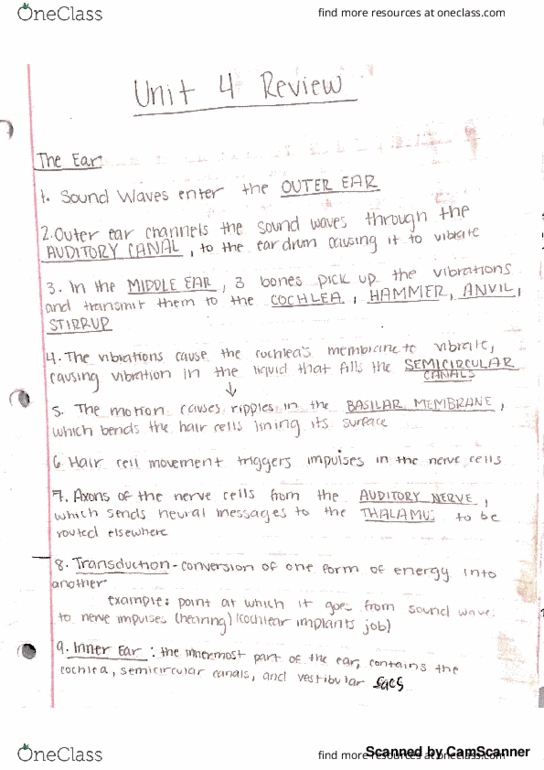 OneClass
find more resources at oneclass.com
Unit 4 Review
The Ear
1. Sound Waves enter the OUTER EAR
2. Outer ear channels the sound waves through the
AUDITORY CANAL, to the ear drum causing it to vibrate
3. In the MIDDLE EAR, 3 bones pick up the vibrations
and transmit them to the COCHLEA, HAMMER, ANVIL,
STIRRUP
4. The vibrations cause the cochlea's membrane to vibrate,
causing vibration in the liquid that fills the SEMICIRCULAR
CANALS
↓
5. The motion causes ripples in the BASILAR MEMBRANE,
which bends the hair cells lining its surface
6 Hair cell movement triggers impulses in the nerve cells
7. Axons of the nerve cells from the AUDITORY NERVE,
which sends neural messages to the THALAMU: to be
routed elsewhere
8. Transduction - conversion of one form of energy into
another
example: point at which it goes from sound wave:
to nerve impulses (hearing) (cochlear implants job)
9. Inner Ear: the innermost part of the ear, contains the
cochlea, semicircular canals, and vestibular sacs
OneClass
find more resources at oneclass.com
Scanned by CamScanner